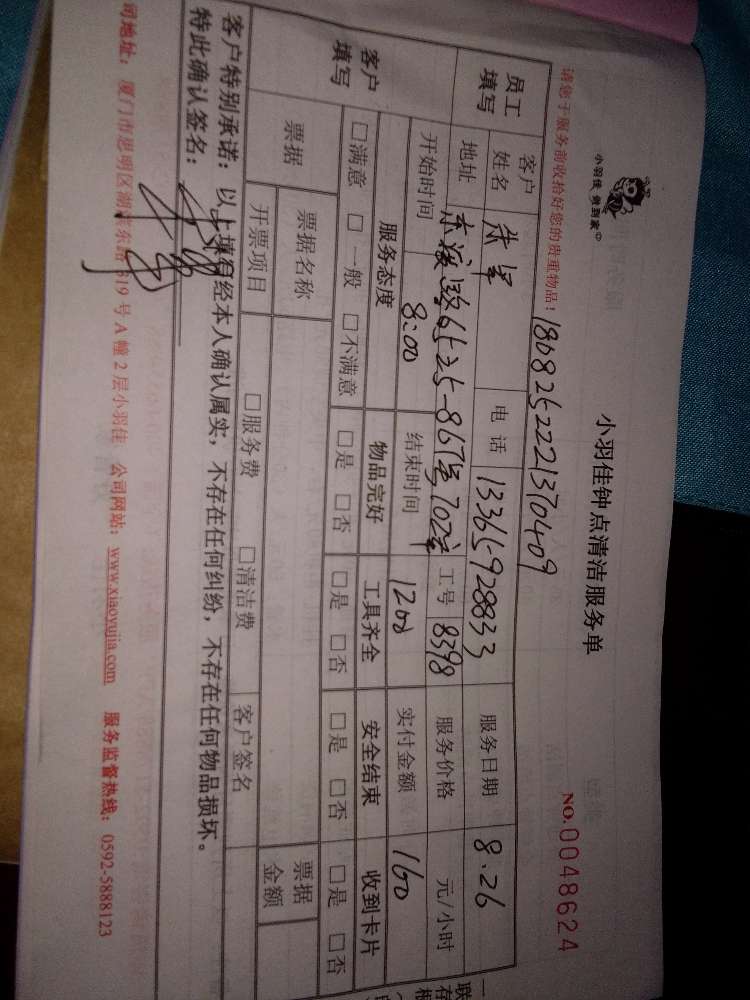 小羽佳 做到家
小羽佳钟点清洁服务单
请您于服务前收拾好您的贵重物品!
NO.0048624
员工填写 客户姓名 电话 服务日期 8.26
地址 工号 8398 服务价格 元/小时
开始时间 8:00 结束时间 1200 实付金额 160
客户填写 服务态度 物品完好 工具齐全 安全结束 收到卡片
□满意 □一般 □不满意 □是 □否 □是 □否 □是 □否 □是 □否
票据 票据名称 票据金额
开票项目 □服务费 □清洁费 客户签名
客户特别承诺:以上填写经本人确认属实,不存在任何纠纷,不存在任何物品损坏。
特此确认签名:
司地址:厦门市思明区湖滨东路319号A幢2层小羽佳 公司网站:www.xiaoyujia.com 服务监督热线:0592-5888123